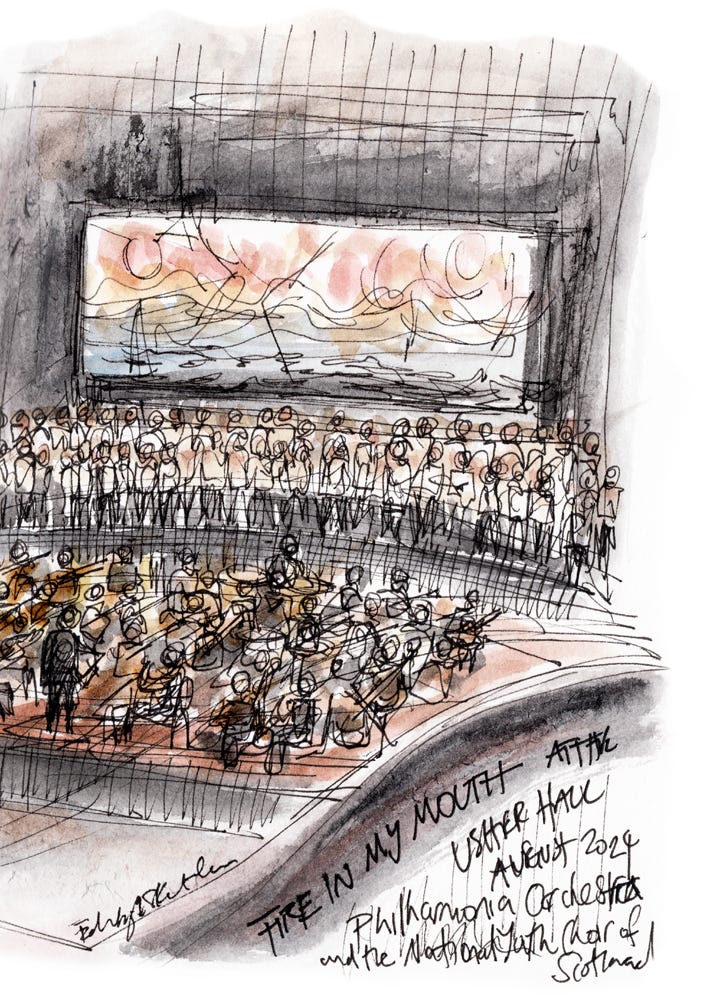 FIRE IN MY MOUTH AT THE
USHER HALL
AUGUST 2024
Philharmonia Orchestra
and the National Youth Choir of
Scotland